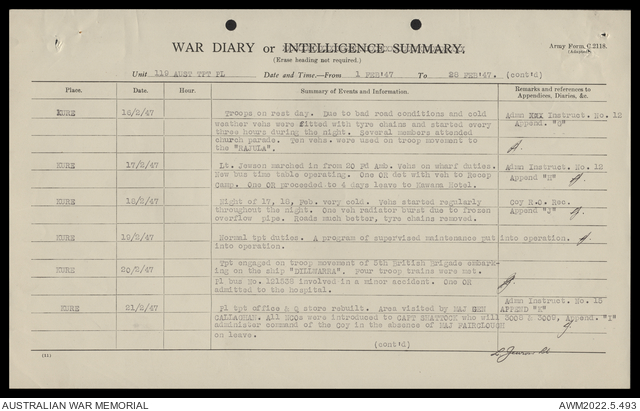 WAR DIARY or INTELLIGENCE SUMMARY.
Army Form C.2118.
(Erase heading not required.)
Unit 119 ADET TPT PL Date and Time.—From 1 FEB'47 To 28 FEB'47. (cont'd)
Place. Date. Hour. Summary of Events and Information. Remarks and references to Appendices, Diaries, &c.
KURE 16/2/47 Troops on rest day. Due to bad road conditions and cold Adem Instruct. No. 12
weather vehs were fitted with tyre chains and started every Append. "J"
three hours during the night. Several members attended
church parade. Ten vehs. were used on troop movement to
the "RAJULA".
KURE 17/2/47 Lt. Jewson marched in from 20 Fd Amb. Vehs on wharf duties. Adem Instruct. No. 12
New bus time table operating. One OR det with veh to Recep Append "H"
Camp. One OR proceeded to 4 days leave to Kawana Hotel.
KURE 18/2/47 Night of 17, 18, Feb. very cold. Vehs started regularly Coy R.O. Rec.
throughout the night. One veh radiator burst due to frozen Append "J"
overflow pipe. Roads much better, tyre chains removed.
KURE 19/2/47 Normal tpt duties. A program of supervised maintenance put into operation.
into operation.
KURE 20/2/47 Tpt engaged on troop movement of 5th British Brigade embark-
ing on the ship "DILLWARRA". Four troop trains were met.
Pl bus No. 121538 involved in a minor accident. One OR
admitted to the hospital.
Adem Instruct. No. 15
KURE 21/2/47 Pl tpt office & Q store rebuilt. Area visited by MAJ GEN APPEND "K"
CALLAGHAN. All NCOs were introduced to CAPT SHATTOCK who will Append. "I"
administer command of the Coy in the absence of MAJ FAIRCLOUGH
on leave.
(cont'd)
(11)
AUSTRALIAN WAR MEMORIAL
AWM2022.5.493